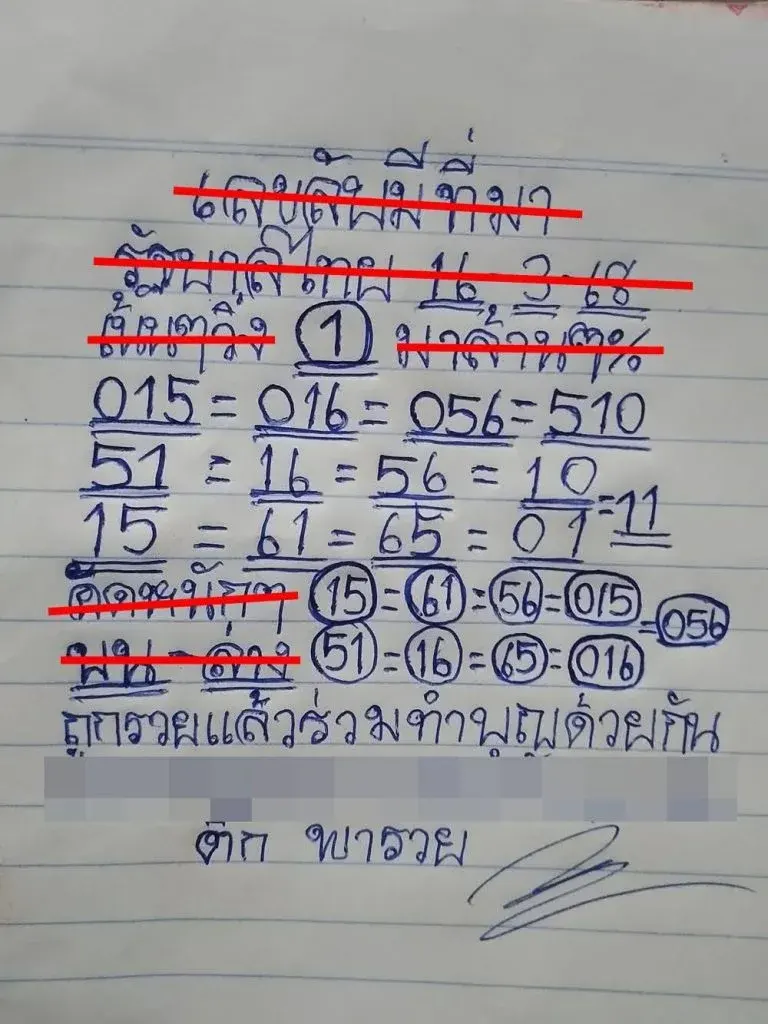 เลขลับมีที่มา
รัฐบาลไทย 16 3 68
เน้นๆวิ่ง 1 มาล้าน%
015 = 016 = 056 = 510
51 = 16 = 56 = 10
15 = 61 = 65 = 01 = 11
คัดหนักๆ 15 = 61 = 56 = 015 = 056
บน - ล่าง 51 = 16 = 65 = 016
ถูกรวยแล้วร่วมทำบุญด้วยกัน
ติก พารวย